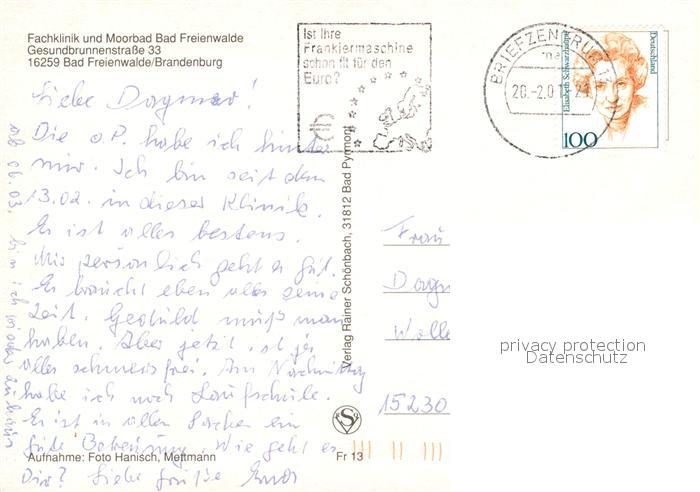 Fachklinik und Moorbad Bad Freienwalde
Gesundbrunnenstraße 33
16259 Bad Freienwalde/Brandenburg
Ist Ihre
Frankiermaschine
schon fit für den
Euro?
BRIEFZENTRUM
20.-2.01-21
Elisabeth Schwarzhaupt
Deutschland
100
Liebe Dagmar!
Die o.P. habe ich hinter
mir. Ich bin seit dem
13.02. in dieser Klinik.
Es ist alles bestens.
Mir persönlich geht es gut.
Es braucht eben alles seine
Zeit. Geduld muß man
haben. Aber jetzt ist ja
alles schmerzfrei. Am Nachmittag
habe ich noch Laufschule.
Es ist in allen Sachen ein
gute Betreuung. Wie geht es
Dir? Liebe Grüße
ab 06.03. bin ich wieder zu Hause
Verlag Rainer Schönbach, 31812 Bad Pyrmont
Frau
Dagm
Walle
15230
privacy protection
Datenschutz
S
Aufnahme: Foto Hanisch, Mettmann
Fr 13